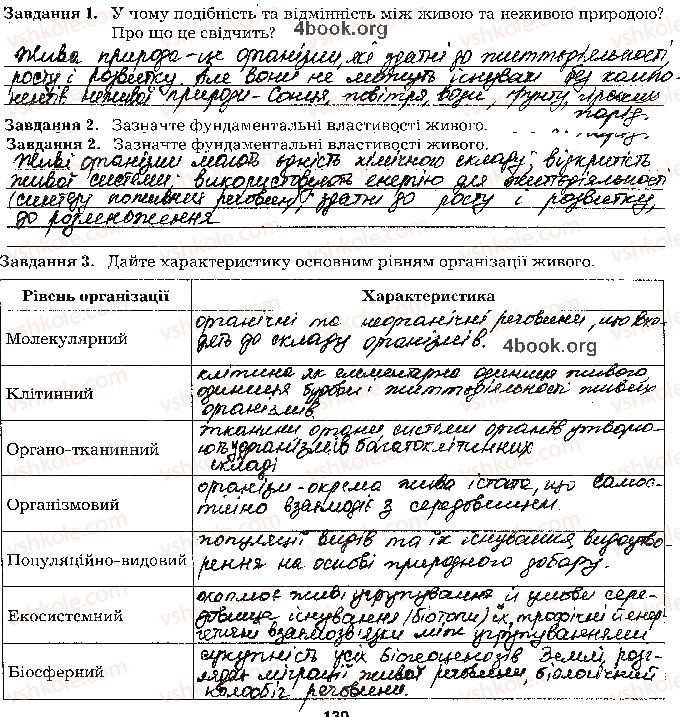 Завдання 1. У чому подібність та відмінність між живою та неживою природою?
Про що це свідчить? 4book.org
Жива природа - це організми, які здатні до життєдіяльності,
росту і розвитку. Але вони не можуть існувати без компо-
нентів неживої природи - Сонця, повітря, води, ґрунту, гірських
порід.
Завдання 2. Зазначте фундаментальні властивості живого.
Завдання 2. Зазначте фундаментальні властивості живого.
Живі організми мають єдність хімічного складу; відкритість
живої системи; використовують енергію для життєдіяльності
(синтезу поживних речовин); здатні до росту і розвитку,
до розмноження
Завдання 3. Дайте характеристику основним рівням організації живого.
Рівень організації Характеристика
Молекулярний
органічні та неорганічні речовини, що вхо-
дять до складу організмів. 4book.org
Клітинний
клітина як елементарна одиниця живого,
одиниця будови і життєдіяльності живих
організмів
Органо-тканинний
тканини органи системи органів утворю-
ють організмів багатоклітинних
складі
Організмовий
організм - окрема жива істота, що самос-
тійно взаємодіє з середовищем
Популяційно-видовий
популяції видів та їх існування, видоутво-
рення на основі природного добору.
Екосистемний
охоплює живі угрупування й умови сере-
довища існування (біотопи) їх, трофічні й енер-
гетичні взаємозв'язки між угрупуваннями
Біосферний
сукупність усіх біогеоценозів Землі, розг-
лядає міграції живої речовини, біологічний
колообіг речовини.
130